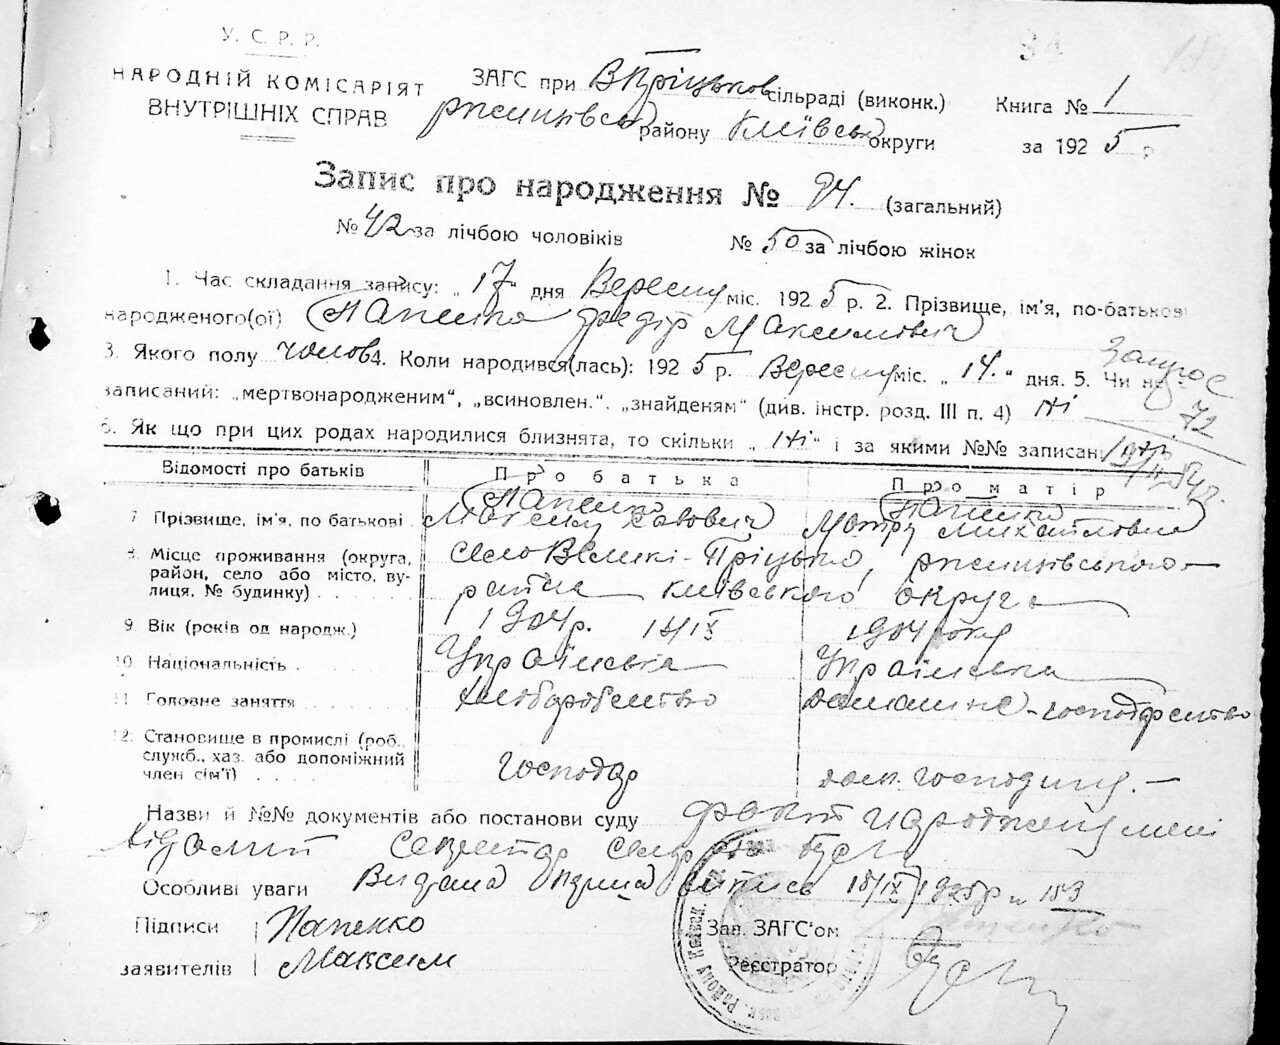 У. С. Р. Р.
НАРОДНІЙ КОМІСАРІЯТ
ВНУТРІШНІХ СПРАВ
ЗАГС при В Пріцьков сільраді (виконк.)
ржищівськ району Київськ округи
Книга № 1
за 1925 р
Запис про народження № 94. (загальний)
№ 42 за лічбою чоловіків № 50 за лічбою жінок
1. Час складання запису: „17" дня Вересня міс. 1925 р. 2. Прізвище, ім'я, по-батькові
народженого(ої) Папенко Федір Максимович
3. Якого полу чолов 4. Коли народився(лась): 1925 р. Вересня міс. „14." дня. 5. Чи не
записаний: „мертвонародженим", „всиновлен.". „знайденям" (див. інстр. розд. III п. 4) Ні
6. Як що при цих родах народилися близнята, то скільки „Ні" і за якими №№ записані
Запрос
72
Відомості про батьків Про батька Про матір
7 Прізвище, ім'я, по батькові Папенко Максим Савович Папенко Мотря Михайловна
8. Місце проживання (округа, район, село або місто, вулиця, № будинку) село Великі-Пріцьки, ржищівського
района Київського округа
9. Вік (років од народж.) 1904 р. 1904 року
10. Національність Українська Українська
11 Головне заняття хліборобство домашнє-господарство
12. Становище в промислі (роб., служб., хаз. або допоміжний член сім'ї) господар дом. господиня.
Назви й №№ документів або постанови суду факт народження мені
відомий Секретар сельради
Особливі уваги Видана виписъ 18/IX 1925р № 153
Підписи Папенко
заявителів Максим
Зав. ЗАГС'ом
Реєстратор